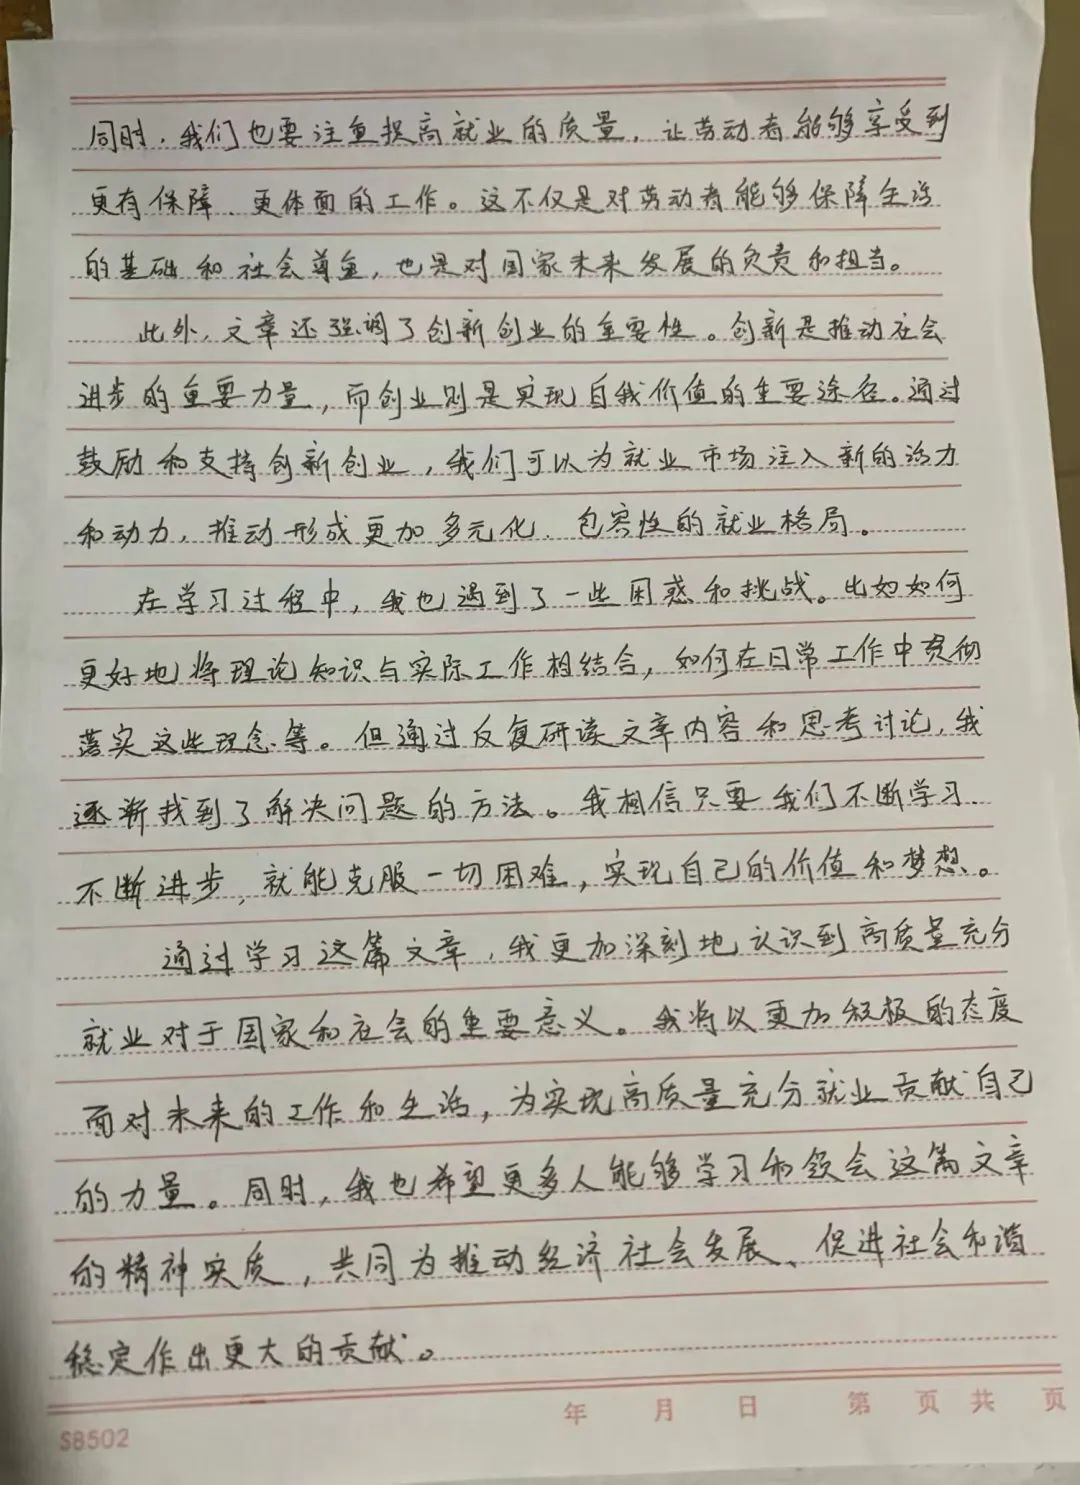 同时，我们也要注重提高就业的质量，让劳动者能够享受到
更有保障、更体面的工作。这不仅是对劳动者能够保障生活
的基础和社会尊重，也是对国家未来发展的负责和担当。
此外，文章还强调了创新创业的重要性。创新是推动社会
进步的重要力量，而创业则是实现自我价值的重要途径。通过
鼓励和支持创新创业，我们可以为就业市场注入新的活力
和动力，推动形成更加多元化、包容性的就业格局。
在学习过程中，我也遇到了一些困惑和挑战。比如如何
更好地将理论知识与实际工作相结合，如何在日常工作中贯彻
落实这些理念等。但通过反复研读文章内容和思考讨论，我
逐渐找到了解决问题的方法。我相信只要我们不断学习、
不断进步，就能克服一切困难，实现自己的价值和梦想。
通过学习这篇文章，我更加深刻地认识到高质量充分
就业对于国家和社会的重要意义。我将以更加积极的态度
面对未来的工作和生活，为实现高质量充分就业贡献自己
的力量。同时，我也希望更多人能够学习和领会这篇文章
的精神实质，共同为推动经济社会发展、促进社会和谐
稳定作出更大的贡献。
年 月 日 第 页 共 页
S8502